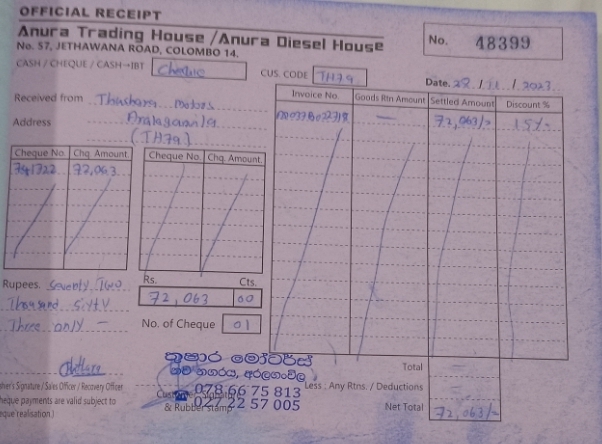 OFFICIAL RECEIPT
Anura Trading House / Anura Diesel House
No. 57, JETHAWANA ROAD, COLOMBO 14.
No. 48399
CASH / CHEQUE / CASH→IBT Cheque
CUS. CODE TH79
Date. 28 / 11 / 2023
Received from Thushara motors
Address Aralaganwila
(TH79)
Invoice No. Goods Rtn Amount Settled Amount Discount %
— 72,063/= 15%
Cheque No. Chq. Amount Cheque No. Chq. Amount
741722 72,063
Rupees. Seventy Two
Thousand Sixty
Three only —
Rs. Cts.
72,063 00
No. of Cheque 01
කුෂාර මෝටර්ස්
නව නගරය, අරලගංවිල
078 66 75 813
027 22 57 005
Signature / Sales Officer / Recovery Officer
cheque payments are valid subject to
cheque realisation.)
& Rubber stamp
Total
Less : Any Rtns. / Deductions
Net Total 72,063/=